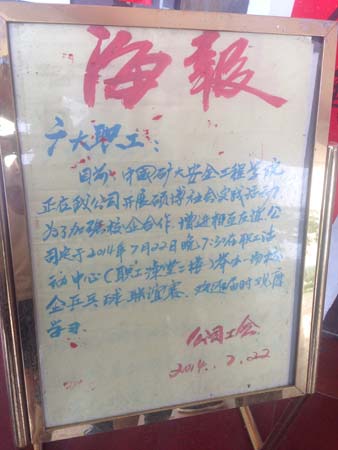 海报
广大职工：
目前，中国矿大安全工程学院
正在我公司开展硕博社会实践活动
为了加强校企合作，增进相互友谊公
司定于2014年7月22日晚7:30在职工活
动中心（职工食堂二楼）举办一场校
企乒乓球联谊赛，欢迎届时观摩
学习.
公司工会
2014.7.22